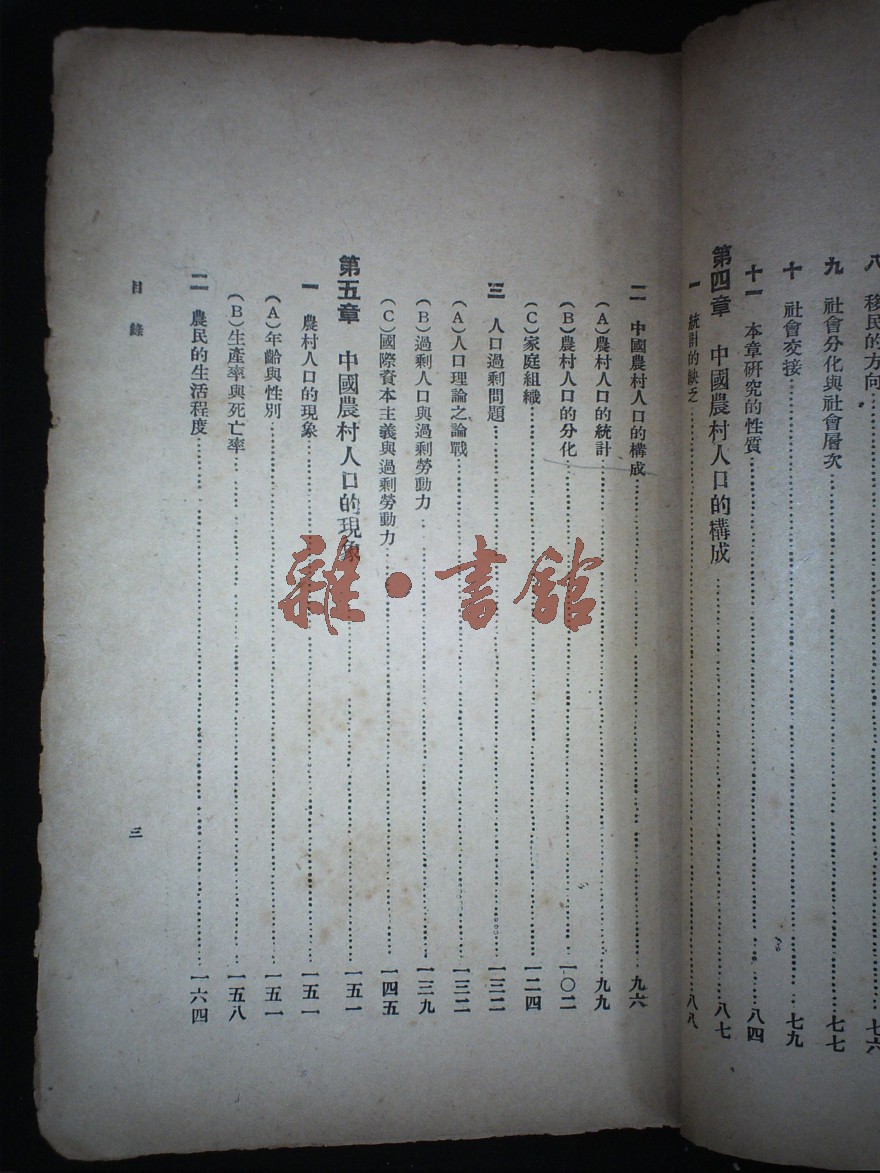 八 移民的方向……七六
九 社會分化與社會層次……七七
十 社會交接……七九
十一 本章研究的性質……八四
第四章 中國農村人口的構成……八七
一 統計的缺乏……八八
二 中國農村人口的構成……九六
(A)農村人口的統計……九九
(B)農村人口的分化……一〇二
(C)家庭組織……一二四
三 人口過剩問題……一三二
(A)人口理論之論戰……一三二
(B)過剩人口與過剩勞動力……一三九
(C)國際資本主義與過剩勞動力……一四五
第五章 中國農村人口的現象……一五一
一 農村人口的現象……一五一
(A)年齡與性別……一五一
(B)生產率與死亡率……一五八
二 農民的生活程度……一六四
目錄 三
雜·書館